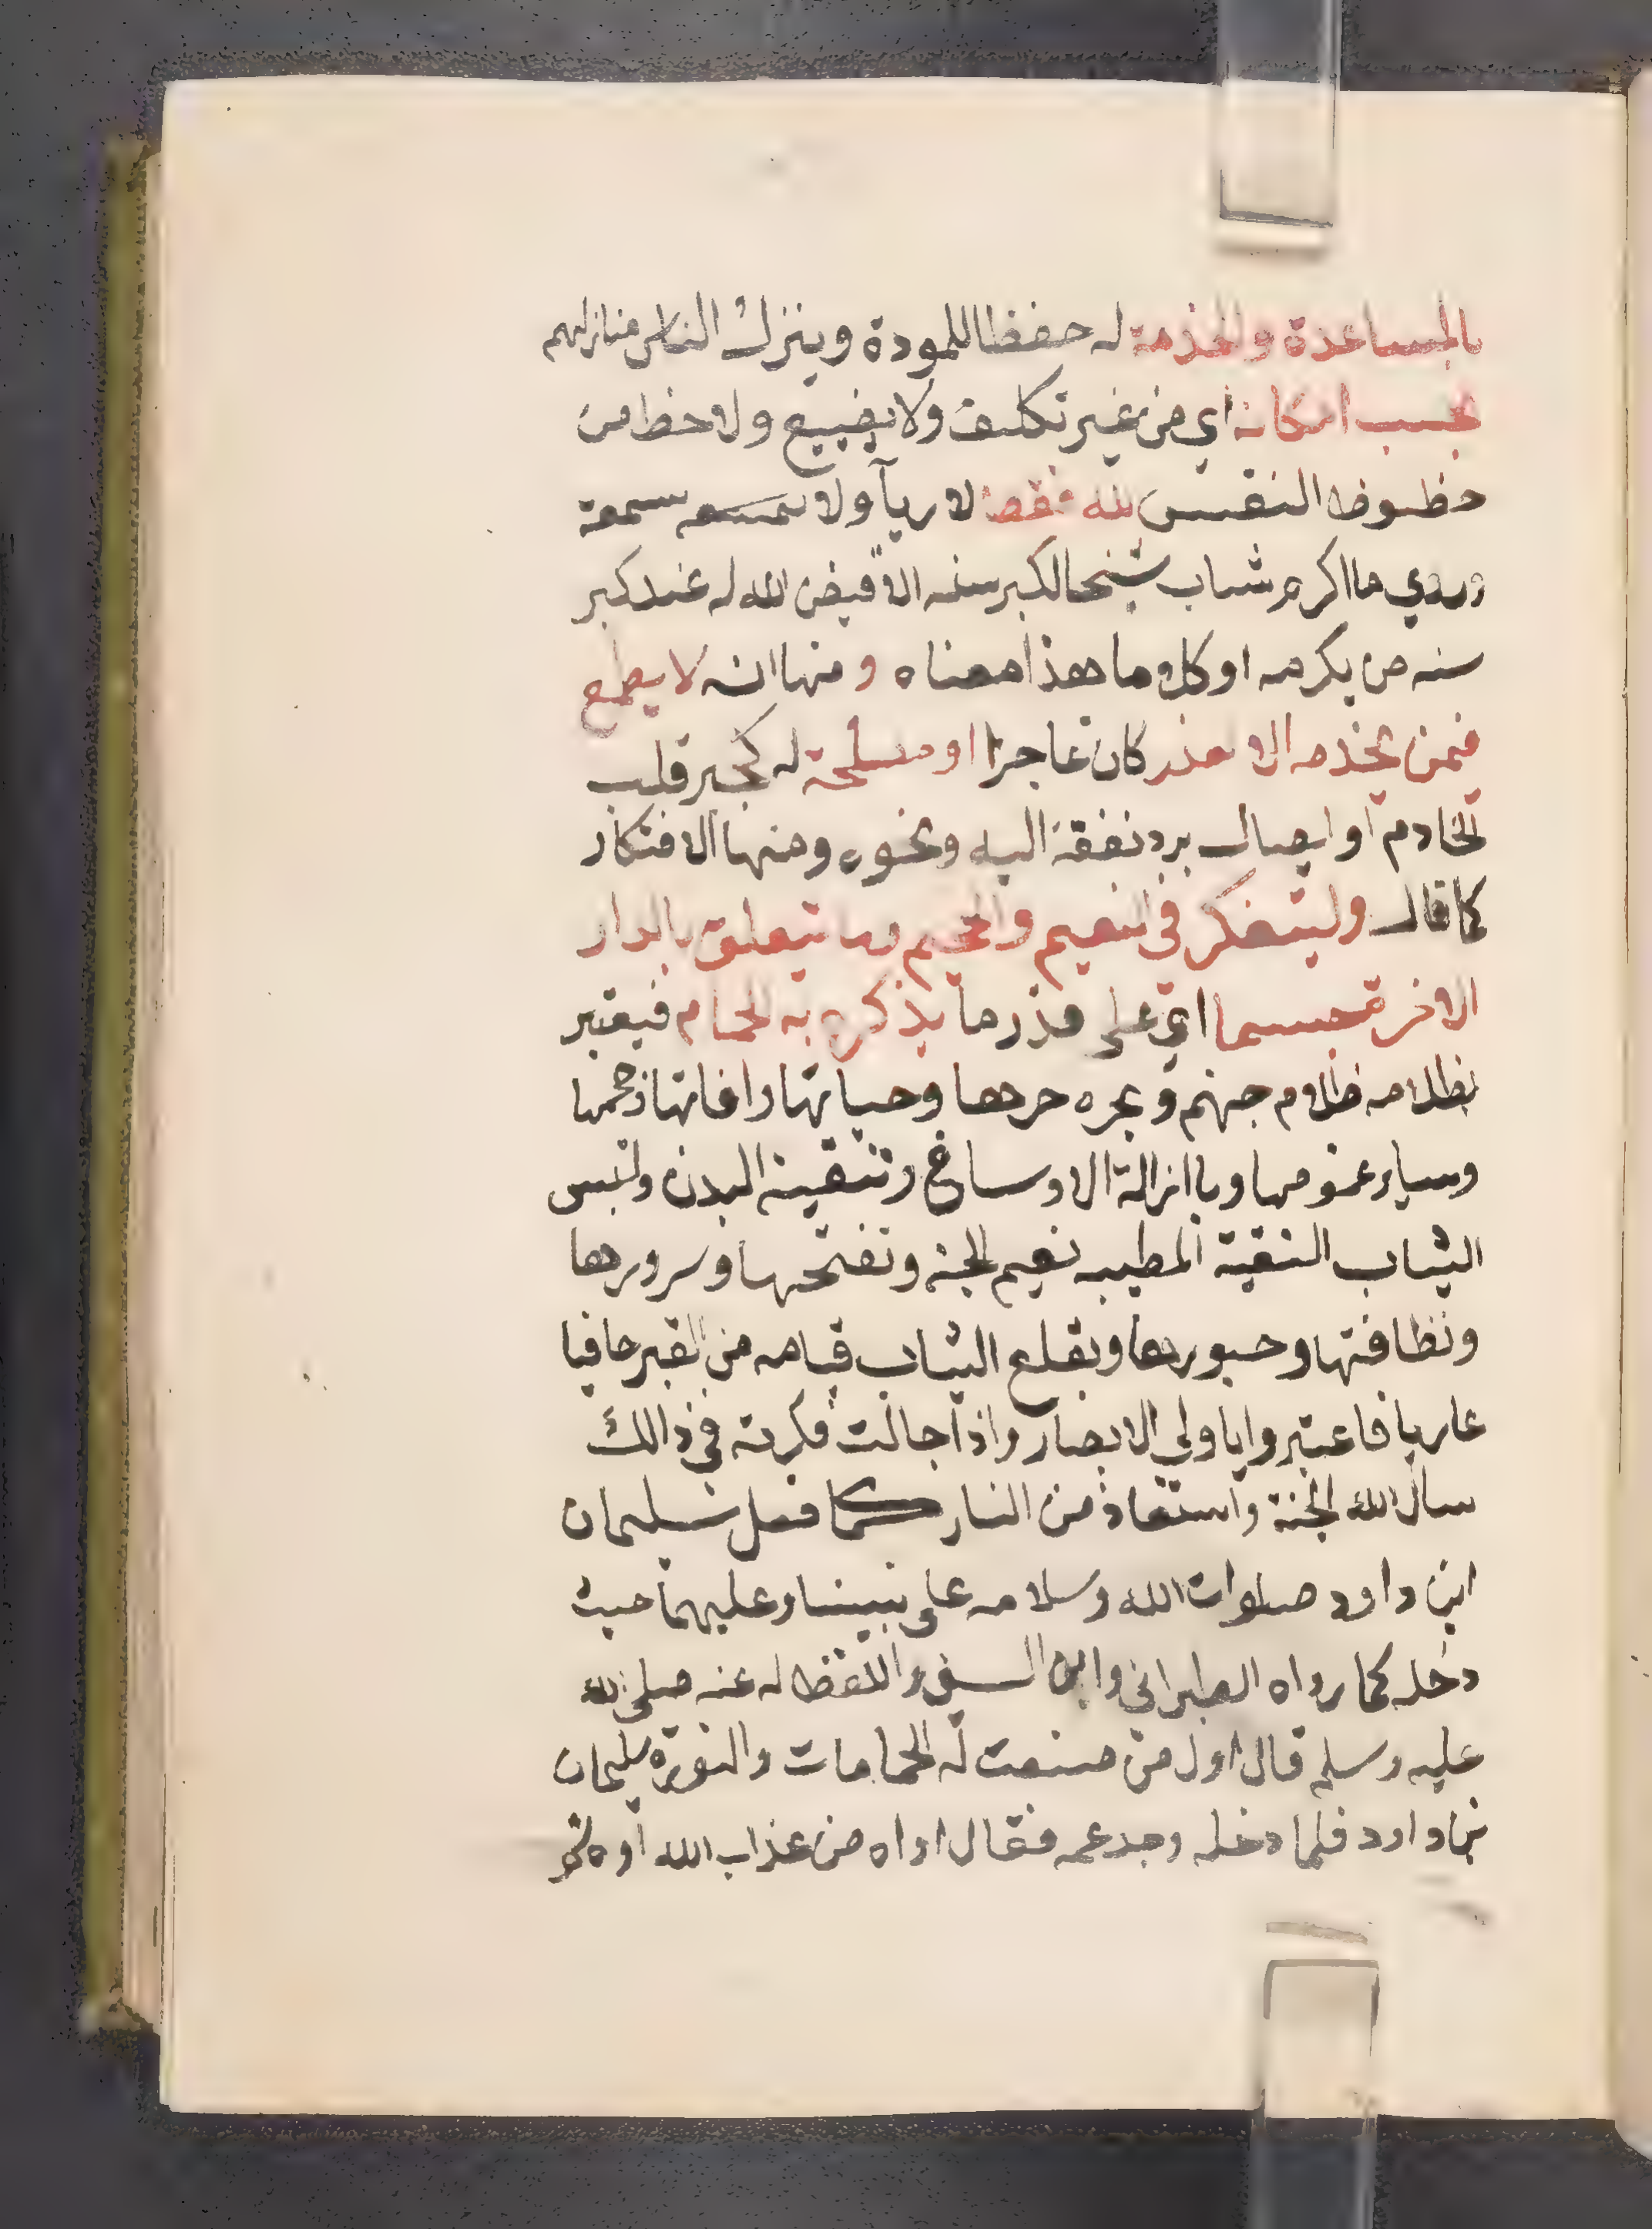 بالمساعدة والخدمة له حفظا للمودة وينزل الناس منازلهم
بحسب امكانه اي من غير تكلف ولا يضيع ولا حظ من
حظوظ النفس لله فقط لا رياً ولا سمعة
وروي ما اكرم شاب شيخا لكبر سنه الا قيض الله له عند كبر
سنه من يكرمه او كلاما هذا معناه ومنها انه لا يطمع
فيمن يخدمه الا لعذر كان عاجزا او مصلحة له كجبر قلب
الخادم او ايصال برد نفقة اليه ونحوه ومنها الافتكار
كما قال وليتفكر في النعيم والجحيم وما يتعلق بالدار
الاخرة حسبما اي على قدر ما يذكره به الحمام فيعتبر
بظلامه ظلام جهنم وبحره حرها وحياتها وافاتها وحمها
وساير غمومها وبازالة الاوساخ وتنقية البدن ولبس
الثياب النقية المطيبه نعيم الجنه وسرورها
ونظافتها وحبورها وبقلع الثياب قيامه من القبر حافيا
عاريا فاعتبروا يا اولي الابصار واذا جالت فكرته في ذالك
سال الله الجنة واستعاذ من النار كما فعل سليمان
ابن داود صلوات الله وسلامه على نبينا وعليهما حيث
دخله كما رواه الطبراني وابن السني واللفظ له عنه صلى الله
عليه وسلم قال اول من صنعت له الحمامات والنورة سليمان
بن داود فلما دخله وجد غمه فقال اواه من عذاب الله اوه